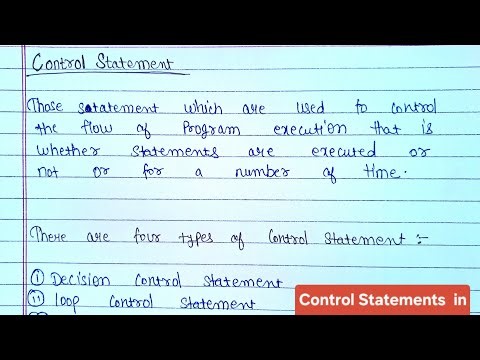 Control Statement
Those satatement which are used to control
the flow of Program execution that is
whether statements are executed or
not or for a number of time.
There are four types of Control Statement :-
(i) Decision Control statement
(ii) loop Control statement
Control Statements in